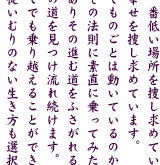 番低い場所を捜し求めて、
せを捜し求めています。
てものごとは動いているのか
の法則に素直に乗ってみた
ありその進む道をふさがれる
の道を見つけ流れ続けます。
でも乗り越えることができ
従いむりのない生き方も選択